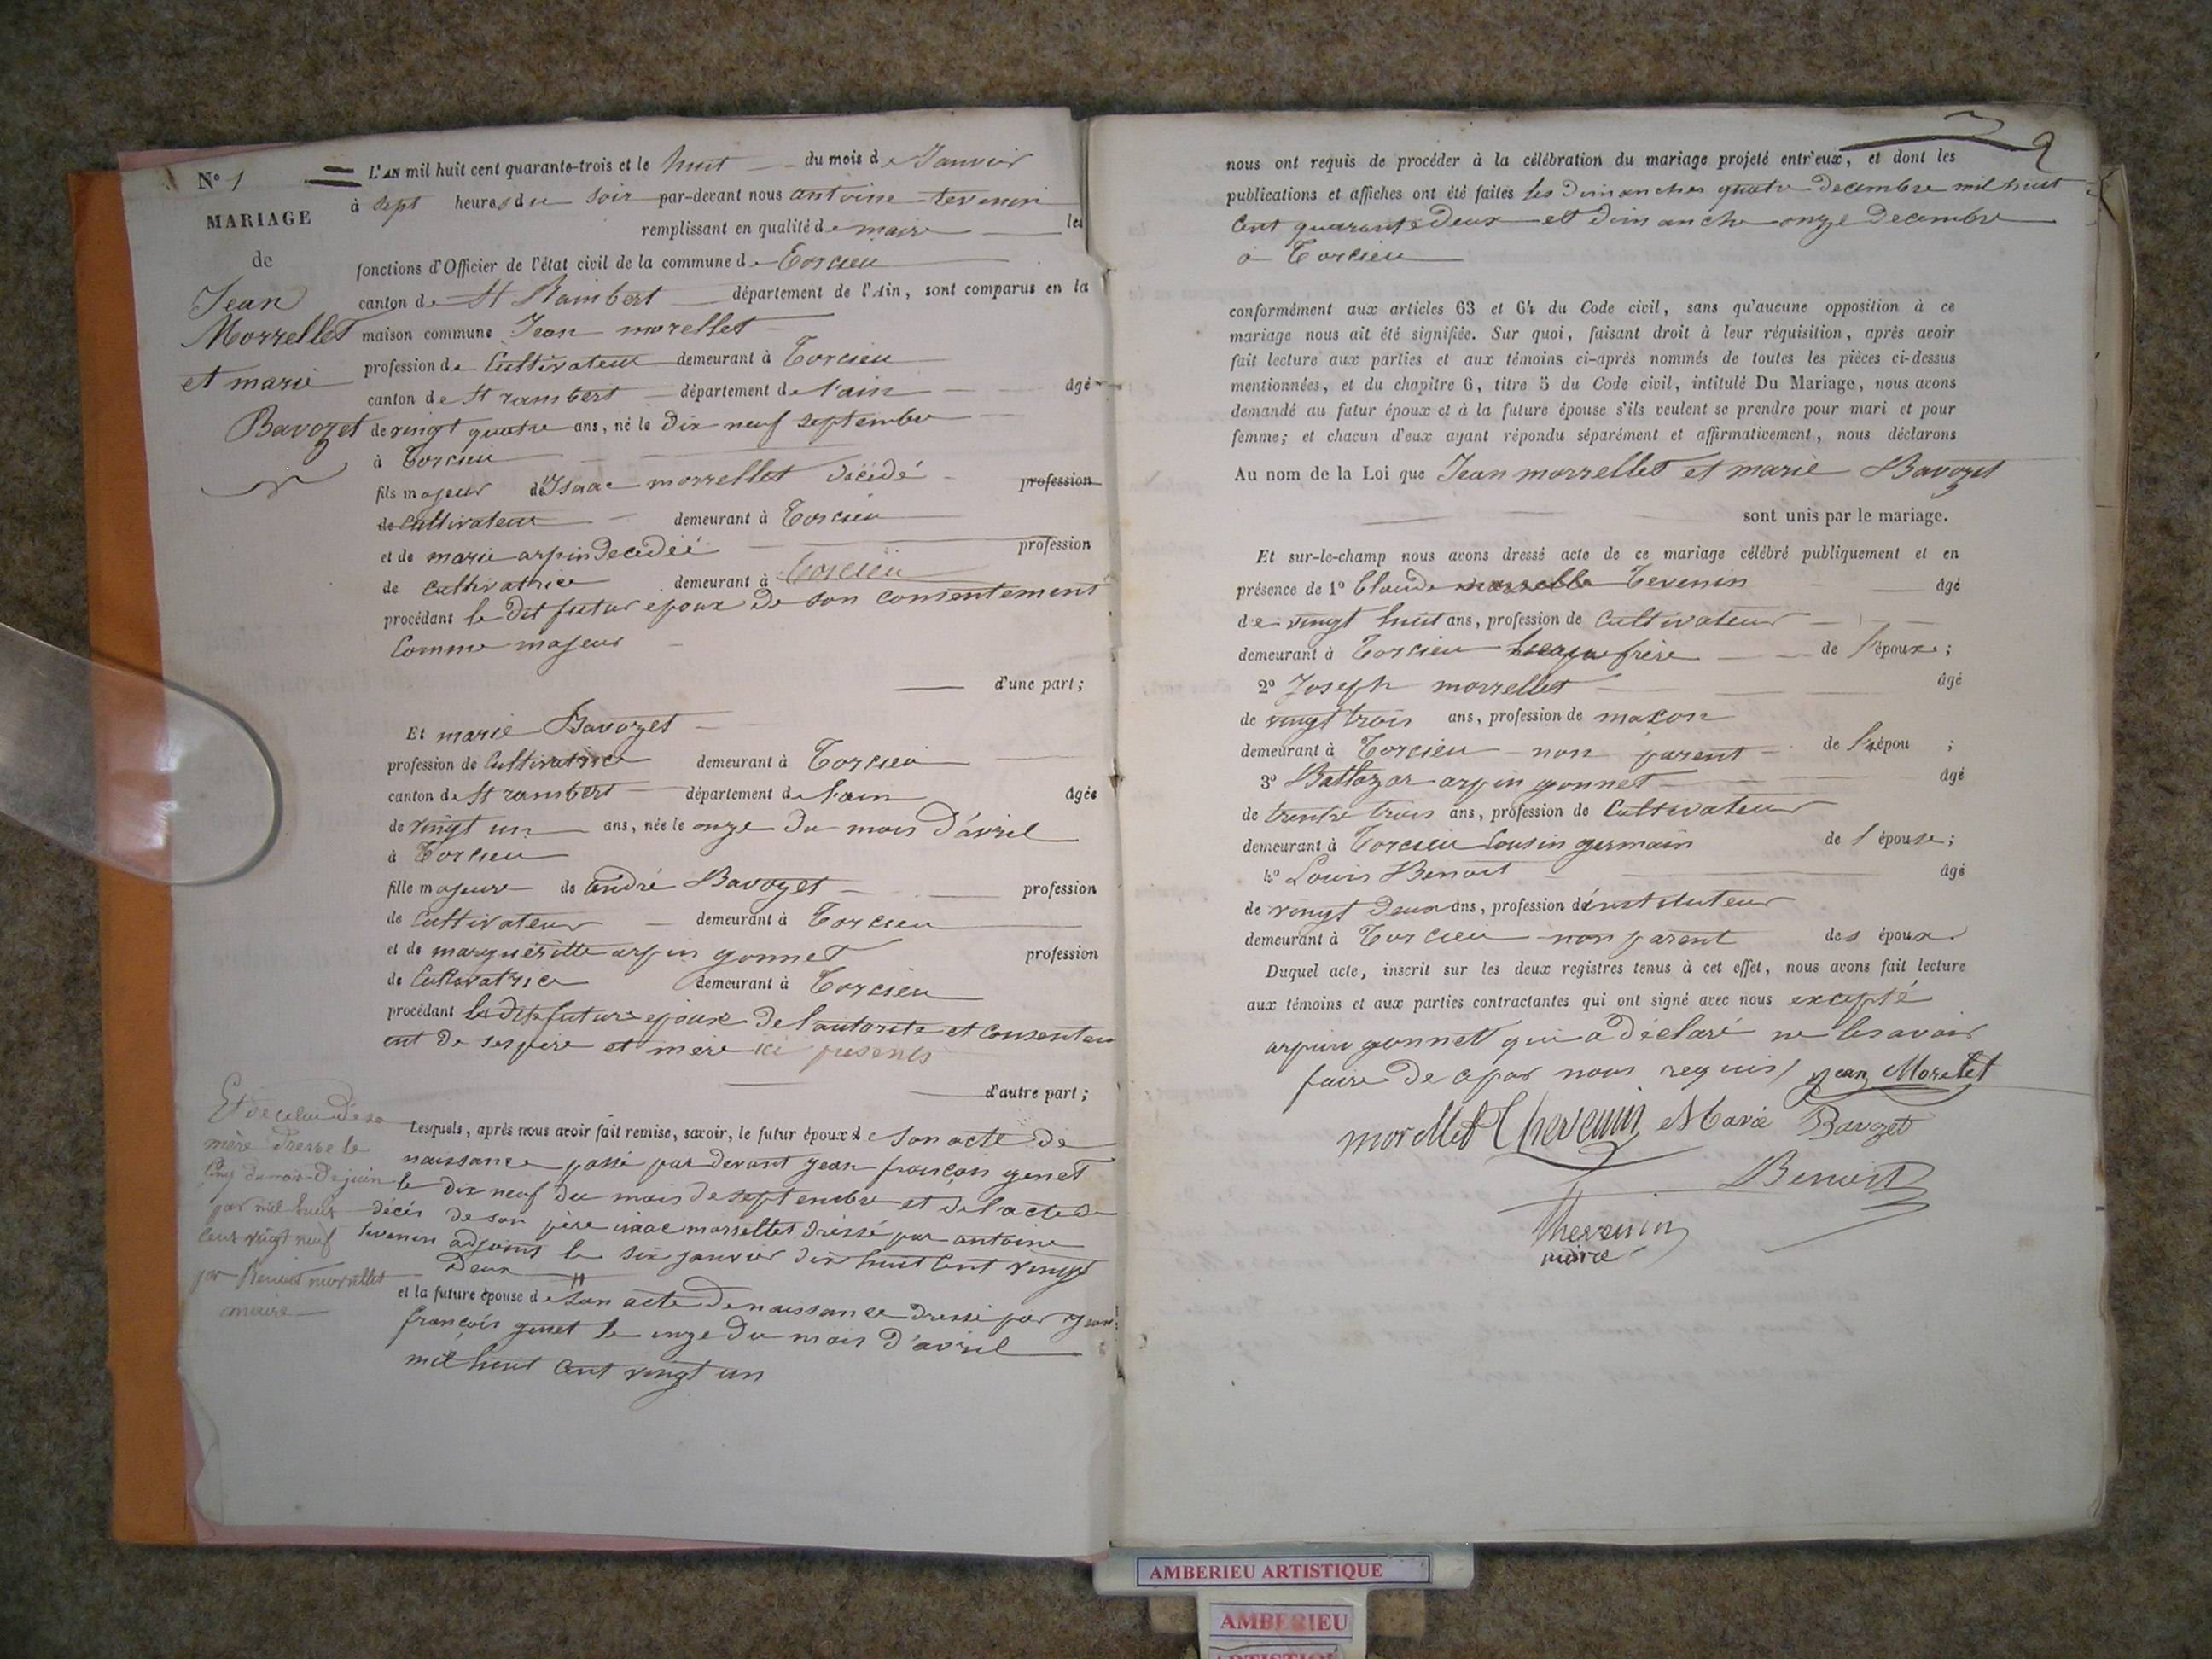 N° 1
MARIAGE
de
Jean
Morrellet
et marie
Bavozet
L'AN mil huit cent quarante-trois et le huit du mois de Janvier
à sept heures du soir par-devant nous antoine tevenin
remplissant en qualité de maire les
fonctions d'Officier de l'état civil de la commune de Torcieu
canton de St Rambert département de l'Ain, sont comparus en la
maison commune Jean morellet
profession de Cultivateur demeurant à Torcieu
canton de St rambert département de l'ain âgé
de vingt quatre ans, né le dix neuf septembre
à Torcieu
fils majeur de Isaac morrellet décédé profession
de Cultivateur demeurant à Torcieu
et de marie arpin decedée profession
de Cultivatrice demeurant à Torcieu
procédant le dit futur epoux de son consentement
Comme majeur
d'une part;
Et marie Bavozet
profession de Cultivatrice demeurant à Torcieu
canton de St rambert département de l'ain âgée
de vingt un ans, née le onze du mois d'avril
à Torcieu
fille majeure de andré Bavozet profession
de Cultivateur demeurant à Torcieu
et de marguéritte arpin gonnet profession
de Cultivatrice demeurant à Torcieu
procédant la dite future epouse de l'autorite et consentem
ent de ses pere et mere ici presents
d'autre part;
Lesquels, après nous avoir fait remise, savoir, le futur époux de son acte de
naissance passé par devant jean françois genet
le dix neuf du mois de septembre et de l'acte de
décés de son père isaac morrellet dréssé par antoine
tevenin adjoint le six janvier dix huit cent vingt
Deux
et la future épouse de son acte de naissance dressé par jean
françois genet le onze du mois d'avril
mil huit cent vingt un
Et de celui de sa
mère dressé le
du mois de juin
par mil huit
cent vingt neuf
par Benoit morrellet
maire
2
nous ont requis de procéder à la célébration du mariage projeté entr'eux, et dont les
publications et affiches ont été faites les dimanches quatre decembre mil huit
Cent quarante Deux et dimanche onze decembre
a Torcieu
conformément aux articles 63 et 64 du Code civil, sans qu'aucune opposition à ce
mariage nous ait été signifiée. Sur quoi, faisant droit à leur réquisition, après avoir
fait lecture aux parties et aux témoins ci-après nommés de toutes les pièces ci-dessus
mentionnées, et du chapitre 6, titre 5 du Code civil, intitulé Du Mariage, nous avons
demandé au futur époux et à la future épouse s'ils veulent se prendre pour mari et pour
femme; et chacun d'eux ayant répondu séparément et affirmativement, nous déclarons
Au nom de la Loi que Jean morrellet et marie Bavozet
sont unis par le mariage.
Et sur-le-champ nous avons dressé acte de ce mariage célébré publiquement et en
présence de 1° Claude Tevenin âgé
de vingt huit ans, profession de Cultivateur
demeurant à Torcieu beaufrère de l'époux;
2° Joseph morrellet âgé
de vingt trois ans, profession de maxon
demeurant à Torcieu non parent de l'épou ;
3° Baltazar arpin gonnet âgé
de trente trois ans, profession de Cultivateur
demeurant à Torcieu Cousin germain de l'épouse;
4° Louis Benoit âgé
de vingt deux ans, profession d'instituteur
demeurant à Torcieu non parent des époux
Duquel acte, inscrit sur les deux registres tenus à cet effet, nous avons fait lecture
aux témoins et aux parties contractantes qui ont signé avec nous excepté
arpin gonnet qui a déclaré ne le savoir
faire de ce par nous requis jean Morelet
morellet Thevenin Marie Bavozet
Benoit
Thevenin
maire
AMBERIEU ARTISTIQUE
AMBERIEU
ARTISTIQUE